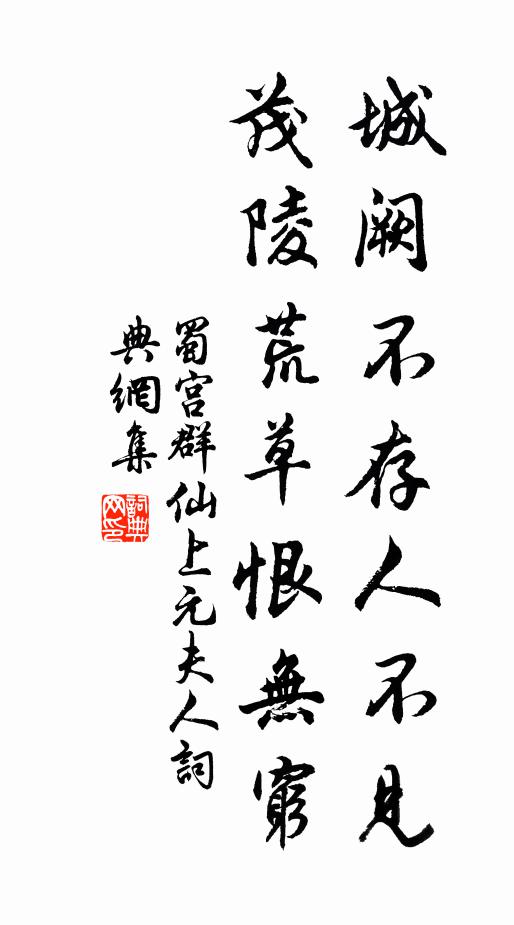 城阙不存人不见
茂陵荒草恨無窮
蜀宫群仙上元夫人詞
典網集
詞典网印